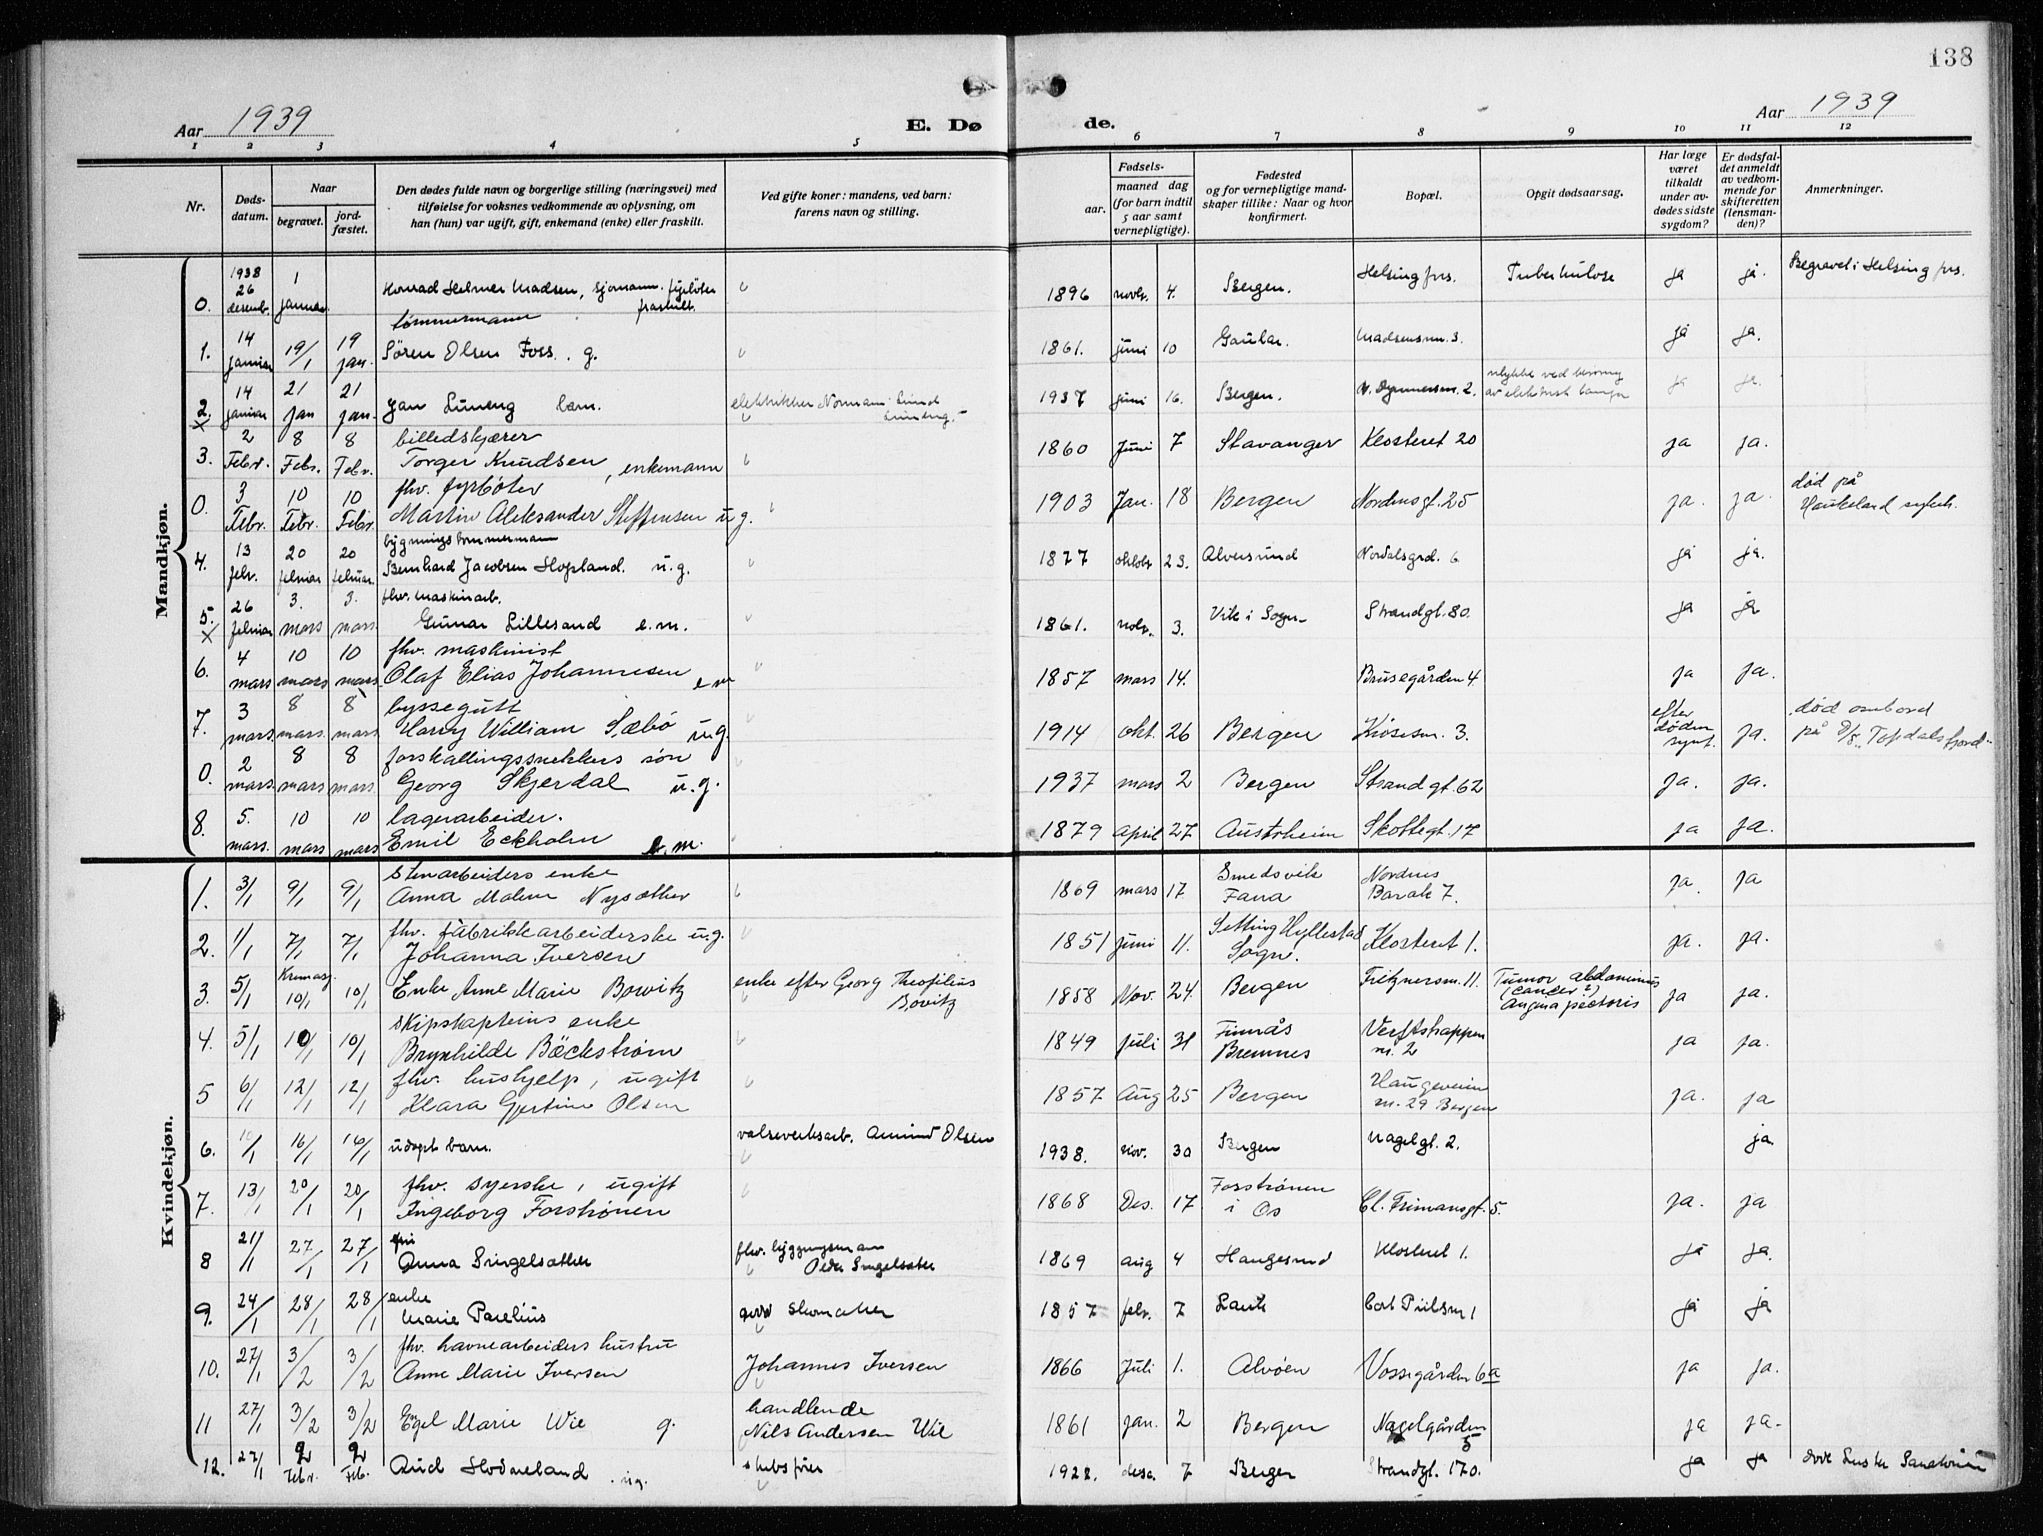 138
Aar 1939
E. Dø
de.
Aar 1939
1 2 3 4 5 6 7 8 9 10 11 12
Nr.
Døds-
datum.
Naar
begravet.
jord-
fæstet.
Den dødes fulde navn og borgerlige stilling (næringsvei) med
tilføielse for voksnes vedkommende av oplysning, om
han (hun) var ugift, gift, enkemand (enke) eller fraskilt.
Ved gifte koner: mandens, ved barn:
farens navn og stilling.
Fødsels-
aar.
maaned dag
(for barn indtil
5 aar samt
vernepligtige).
Fødested
og for vernepligtige mand-
skaper tillike: Naar og hvor
konfirmert.
Bopæl.
Opgit dødsaarsag.
Har læge
været
tilkaldt
under av-
dødes sidste
sygdom?
Er dødsfal-
det anmeldt
av vedkom-
mende for
skifteretten
(lensman-
den)?
Anmerkninger.
Mandkjøn.
0. 1938 26 desemb. 1 januar Konrad Helmer Madsen, sjømann, fyrbøter fraskilt. 1896 novbr. 4. Bergen. Helsingfors. Tuberkulose ja ja. Begravet i Helsingfors.
1. 14 januar 19/1 19 jan. tømmermann
Sören Olsen Foss. g. 1861. juni 10 Gaular. Madsensm. 3. ja ja.
2. x 14 januar 21 jan 21 jan. Jan Luneng barn. elektriker Norman Luneng. 1937 juni 16. Bergen. 2. ulykke ved berøring
av elektrisk lampe ja ja.
3. 2 Febr. 8 Febr. 8 Febr. billedskjærer
Torger Knudsen, enkemann 1860 Juni 7 Stavanger Klosteret 20 ja ja.
0. 3 Febr. 10 Febr. 10 Febr. fhv. fyrbøter
Martin Aleksander Steffensen ug. 1903 Jan. 18 Bergen Nordnesgt. 25 ja. ja. død på
Haukeland sykeh.
4. 13 febr. 20 februar 20 februar. bygningstømmermann
Bernhard Jacobsen Hopland. u.g. 1877 oktobr 23. Alversund Nordalsgrd. 6 ja ja.
5. x 26 februar 3. mars 3. mars. fhv. maskinarb.
Gunnar Lillesand e.m. 1861. novbr. 3. Vik i Sogn Strandgt. 80. ja ja
6. 4 mars 10 mars 10 mars. fhv. maskinist
Olaf Elias Johannesen em 1857 mars 14. Brusegården 4 ja ja.
7. 3 mars. 8 mars. 8 mars. byssegutt
Harry William Sæbö ug. 1914 okt. 26 Bergen Krösesm. 3. efter
døden
synt. ja. død ombord
på D/S "Topdalsfjord"
0. 2 mars. 8 mars 8 mars. forskallingssnekkers sön
Georg Skjerdal u.g. 1937 mars 2 Bergen Strandgt. 62 ja. ja.
8. 5. mars. 10 mars 10 mars lagerarbeider.
Emil Eckholm e.m. 1879 april 27 Austrheim Skottegt. 17 ja ja.
Kvindekjøn.
1. 3/1 9/1 9/1 stenarbeiders enke
Anna Malene Nysæther 1869 mars 17 Smedsvik
Fana Nordnes
Barak 7. ja. ja
2. 1/1 7/1 7/1 fhv. fabrikkarbeiderske u.g.
Johanna Iversen 1851 juni 11. Hyllestad
Sogn. Klosteret 1. ja. ja.
3. 5/1 Kremasj. 10/1 10/1 Enke Anne Marie Bowitz enke efter Georg Theofilius
Bowitz 1858 Nov. 24. Bergen Fritznersm. 11. Tumor abdominis
(cancer?)
Angina pectoris ja ja.
4. 5/1 10/1 10/1 skipskapteins enke
Brynhilde Bäckström 1849 juli 31 Finnås
Bremnes Verftsbakken
nr. 2 ja ja.
5 6/1 12/1 12/1 fhv. hushjelp, ugift
Klara Gjertine Olsen 1857 Aug 25 Bergen Haugeveien
nr. 29 Bergen ja. ja
6. 10/1 16/1 16/1 udøpt barn. valseverksarb. Amund Olsen 1938. nov. 30 Bergen Nagelgt. 2. ja
7. 13/1 20/1 20/1 fhv. syerske, ugift
Ingeborg Forstrønen 1868 Des. 17 Forstrønen
i Os Cl. Frimansgt. 5. ja. ja
8 21/1 27/1 27/1 fru
Anna Singelsæther fhv. bygningsmann
Peder Singelsæter 1869 aug 4 Haugesund Klosteret 1. ja ja.
9. 24/1 28/1 28/1 enke
Marie Parelius skomaker 1857 febr. 7 Cort Piilsm 1 ja ja
10. 27/1 3/2 3/2 fhv. havnearbeiders hustru
Anne Marie Iversen Johannes Iversen 1866 Juli 1. Alvøen Vossegården 6a ja ja.
11 27/1 3/2 3/2 Egel Marie Wie g. handlende
Nils Andersen Wie 1861 jan. 2 Bergen Nagelgården
5 ja ja.
12. 27/1 2 Febr. 2 Feb. Aud Hodneland ug. skibsfører 1922. des. 7 Bergen Strandgt. 170. ja ja døde Luster Sanatorium